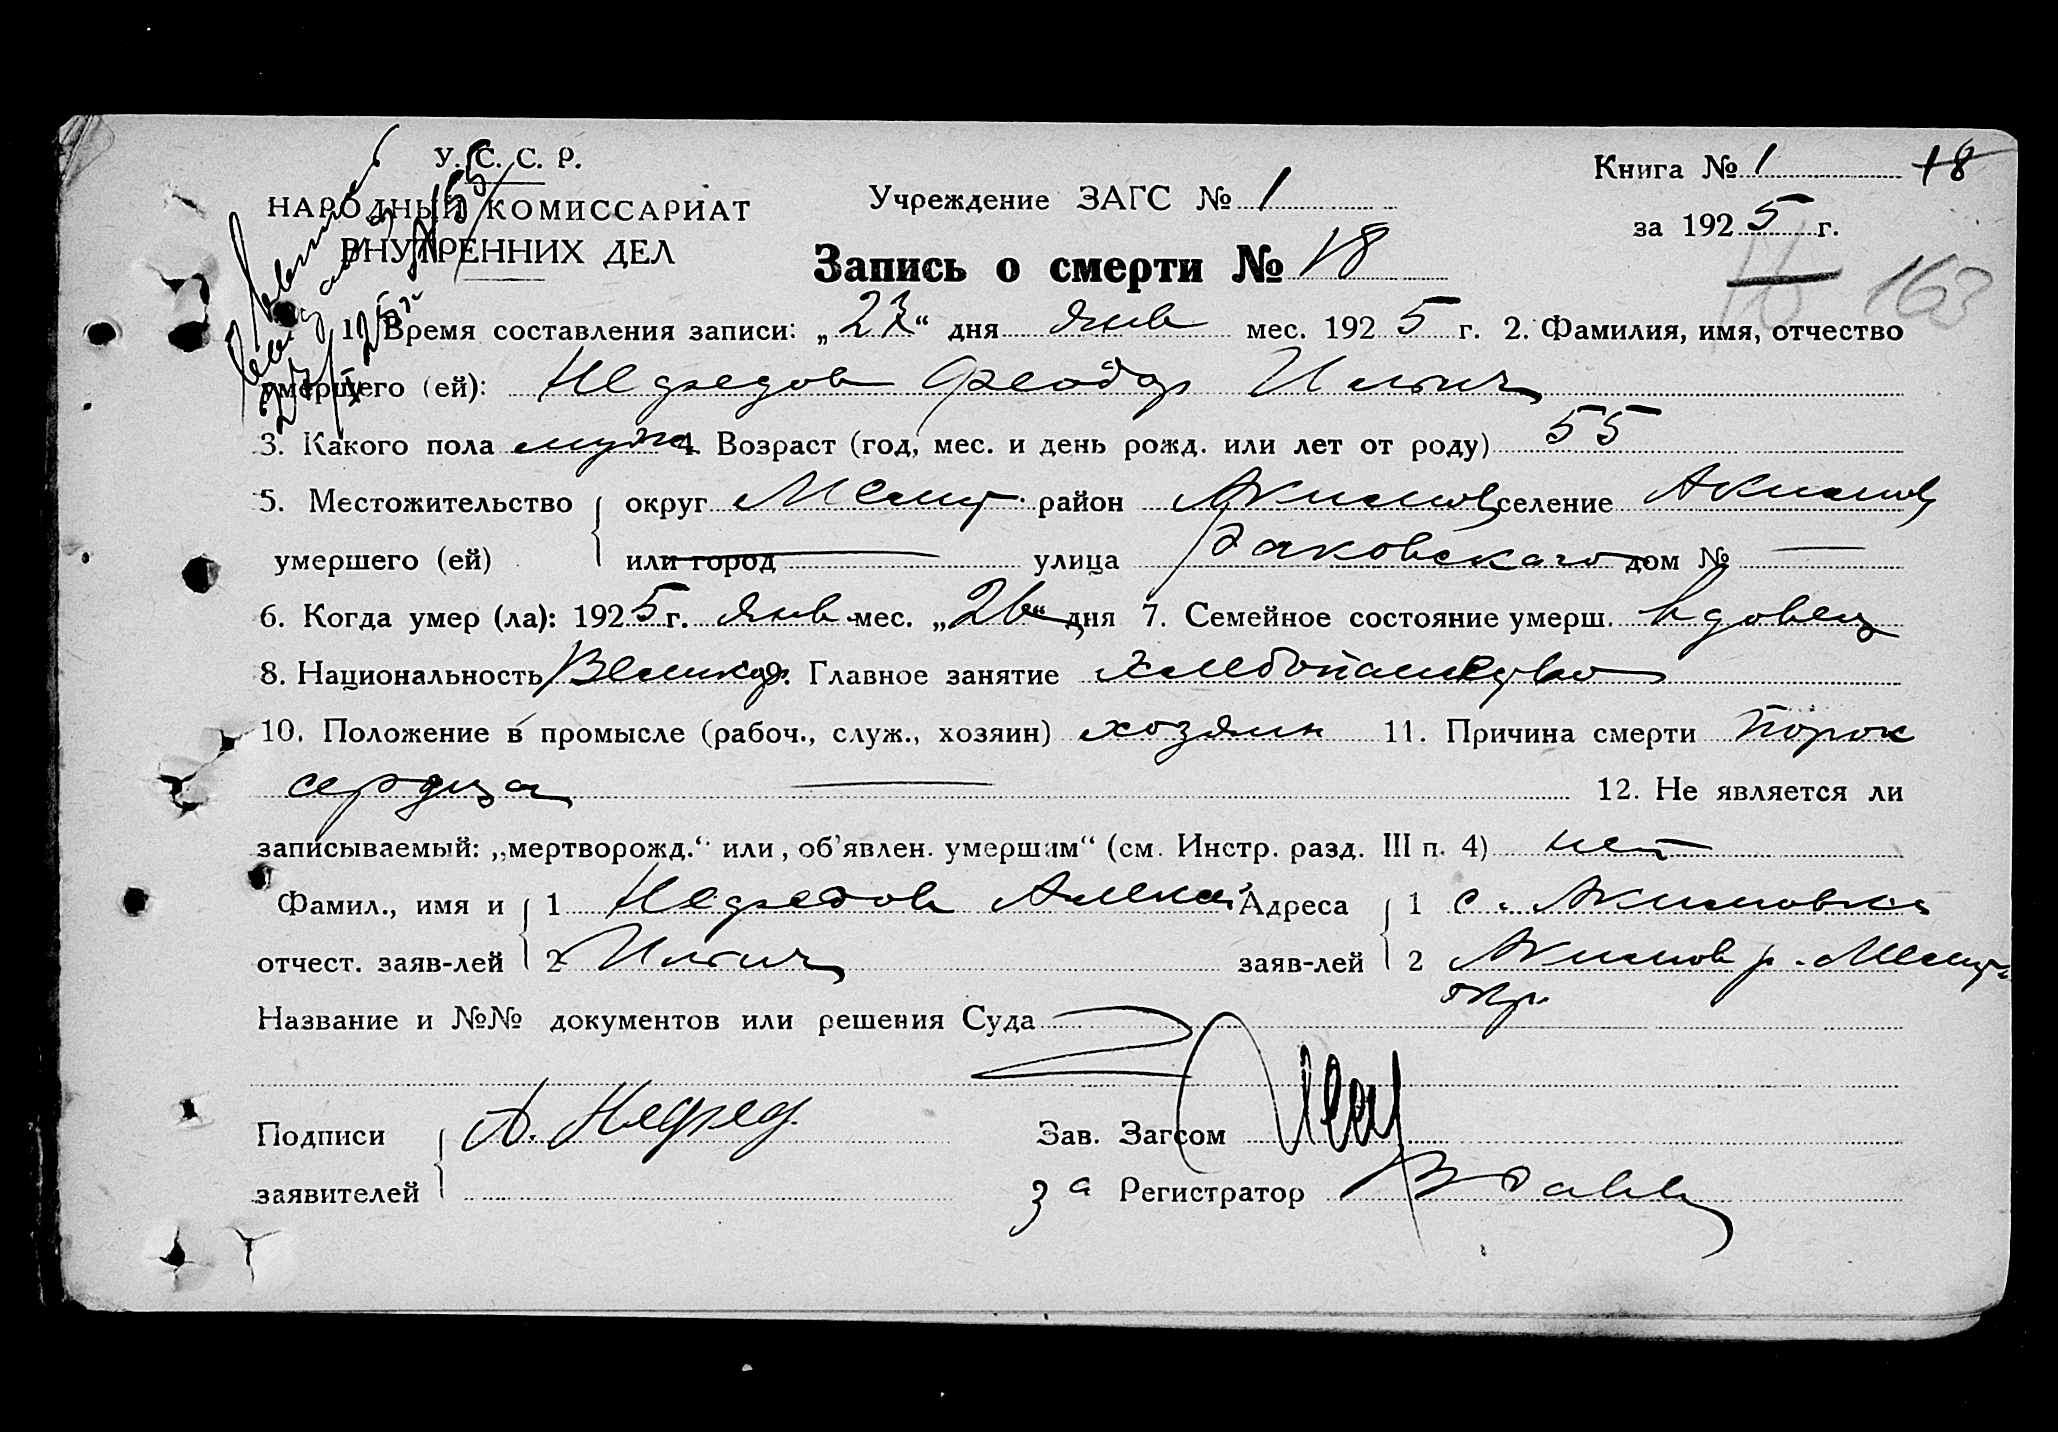 У. С. С. Р.
НАРОДНЫЙ КОМИССАРИАТ
ВНУТРЕННИХ ДЕЛ
Учреждение ЗАГС № 1
Книга № 1 18
за 1925 г.
Запись о смерти № 18
163
1. Время составления записи: „27“ дня янв мес. 1925 г. 2. Фамилия, имя, отчество
умершего (ей): Недредов Феодор Ильич
3. Какого пола муж 4. Возраст (год, мес. и день рожд. или лет от роду) 55
5. Местожительство округ Мелит. район Акимов селение Акимов
умершего (ей) или город улица Раковскаго дом № —
6. Когда умер (ла): 1925 г. янв мес. „26“ дня 7. Семейное состояние умерш. вдовец
8. Национальность Великор. 9. Главное занятие хлебопашество
10. Положение в промысле (рабоч., служ., хозяин) хозяин 11. Причина смерти порок
сердца — 12. Не является ли
записываемый: „мертворожд.“ или, об'явлен. умершим“ (см. Инстр. разд. III п. 4) нет
Фамил., имя и 1 Недредов Алексей Адреса 1 с. Акимовка
отчест. заяв-лей 2 Ильич заяв-лей 2 Акимов р. Мелит.
окр.
Название и №№ документов или решения Суда
Подписи А. Недред. Зав. Загсом
заявителей За Регистратор